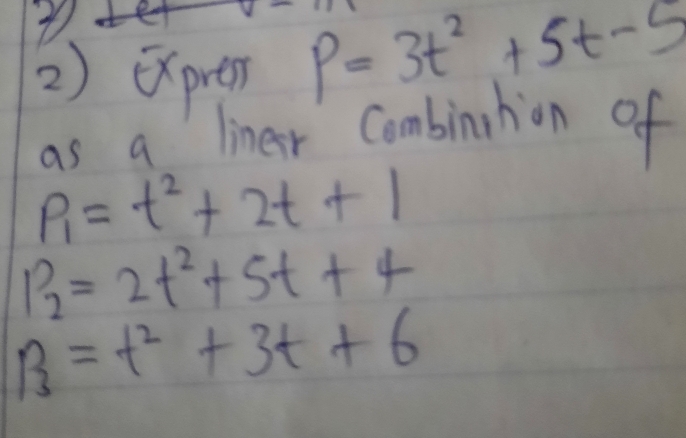 2) Express P = 3t² + 5t - 5
as a linear Combination of
P₁ = t² + 2t + 1
P₂ = 2t² + 5t + 4
P₃ = t² + 3t + 6